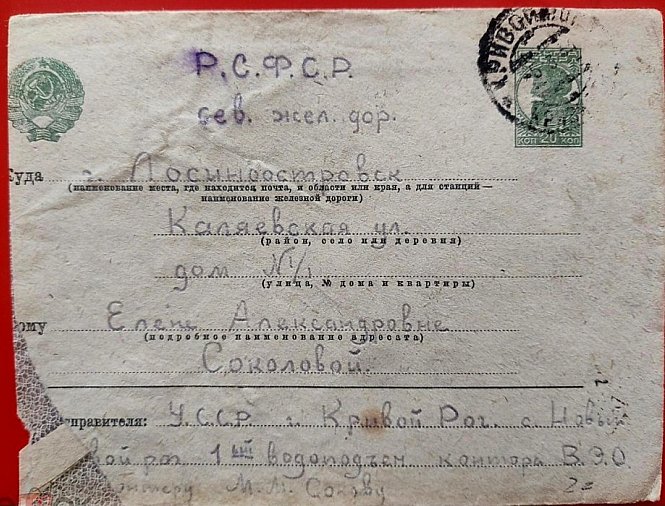 Р.С.Ф.С.Р.
сев. жел. дор.
КОП 20 КОП
Куда г. Лосиноостровск
(наименование места, где находится почта, и области или края, а для станций—
наименование железной дороги)
Каляевская ул.
(район, село или деревня)
дом №1/1
(улица, № дома и квартиры)
ому Елене Александровне
(подробное наименование адресата)
Соколовой.
правителя: У.ССР г. Кривой Рог. с. Новы
вой рог 1ый водоподъем контора В.Э.О
М.М.